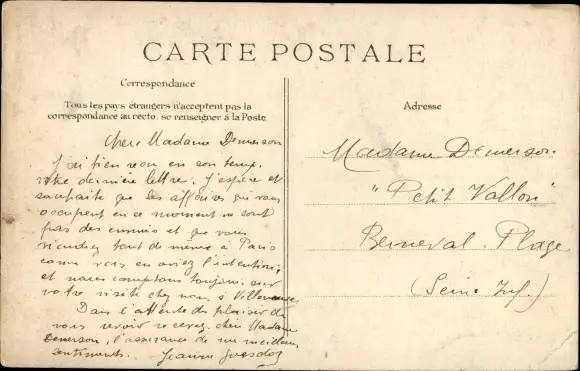 CARTE POSTALE
Correspondance
Tous les pays étrangers n'acceptent pas la
correspondance au recto, se renseigner à la Poste
Adresse
Chère Madame Demerson
J'ai bien reçu en son temps
votre dernière lettre. J'espère et
souhaite que les affaires qui vous
occupent en ce moment ne sont
pas des ennuis et que vous
viendrez tout de même à Paris
comme vous en aviez l'intention;
et nous comptons toujours sur
votre visite chez nous à
Dans l'attente du plaisir de
vous revoir recevez, chère Madame
Demerson, l'assurance de mes meilleurs
sentiments. Jeanne
Madame Demerson
"Petit Vallon"
Berneval. Plage
(Seine Inf.)